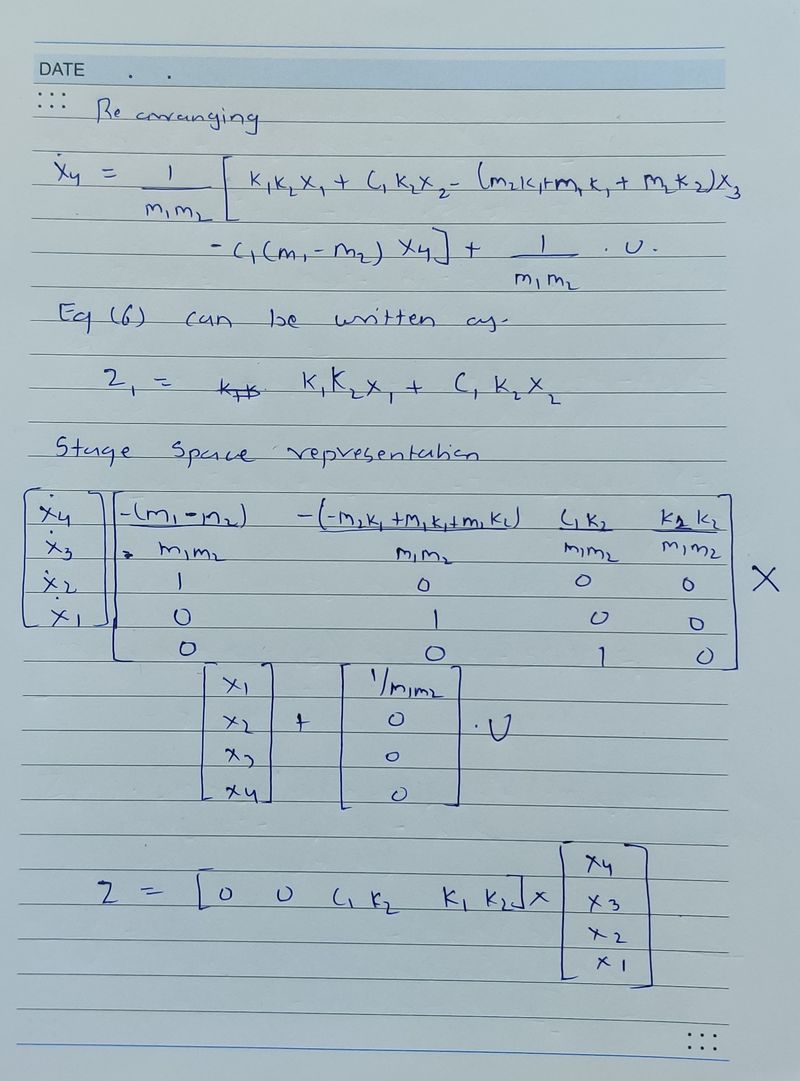 DATE . .
Rearranging
ẋ₄ = 1/m₁m₂ [ K₁K₂x₁ + C₁K₂x₂ - (m₂K₁+m₁K₁ + m₂K₂)x₃
- C₁(m₁-m₂) x₄] + 1/m₁m₂ . U.
Eq (6) can be written as-
Z₁ = K₁K₂x₁ + C₁K₂x₂
Stage Space representation
[ẋ₄ ẋ₃ ẋ₂ ẋ₁] = [-(m₁-m₂)/m₁m₂ -(-m₂K₁+m₁K₁+m₁K₂)/m₁m₂ C₁K₂/m₁m₂ K₂K₂/m₁m₂
1 0 0 0
0 1 0 0
0 0 1 0] X
[x₁ x₂ x₃ x₄] + [1/m₁m₂ 0 0 0] . U
Z = [0 0 C₁K₂ K₁K₂] x [x₄ x₃ x₂ x₁]